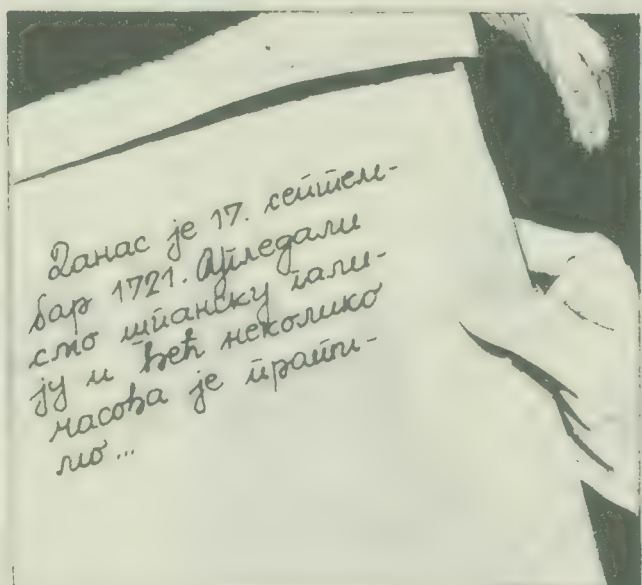 Данас је 17. септем-
бар 1721. Угледали
смо шпанску гали-
ју и већ неколико
часова је прати-
мо...